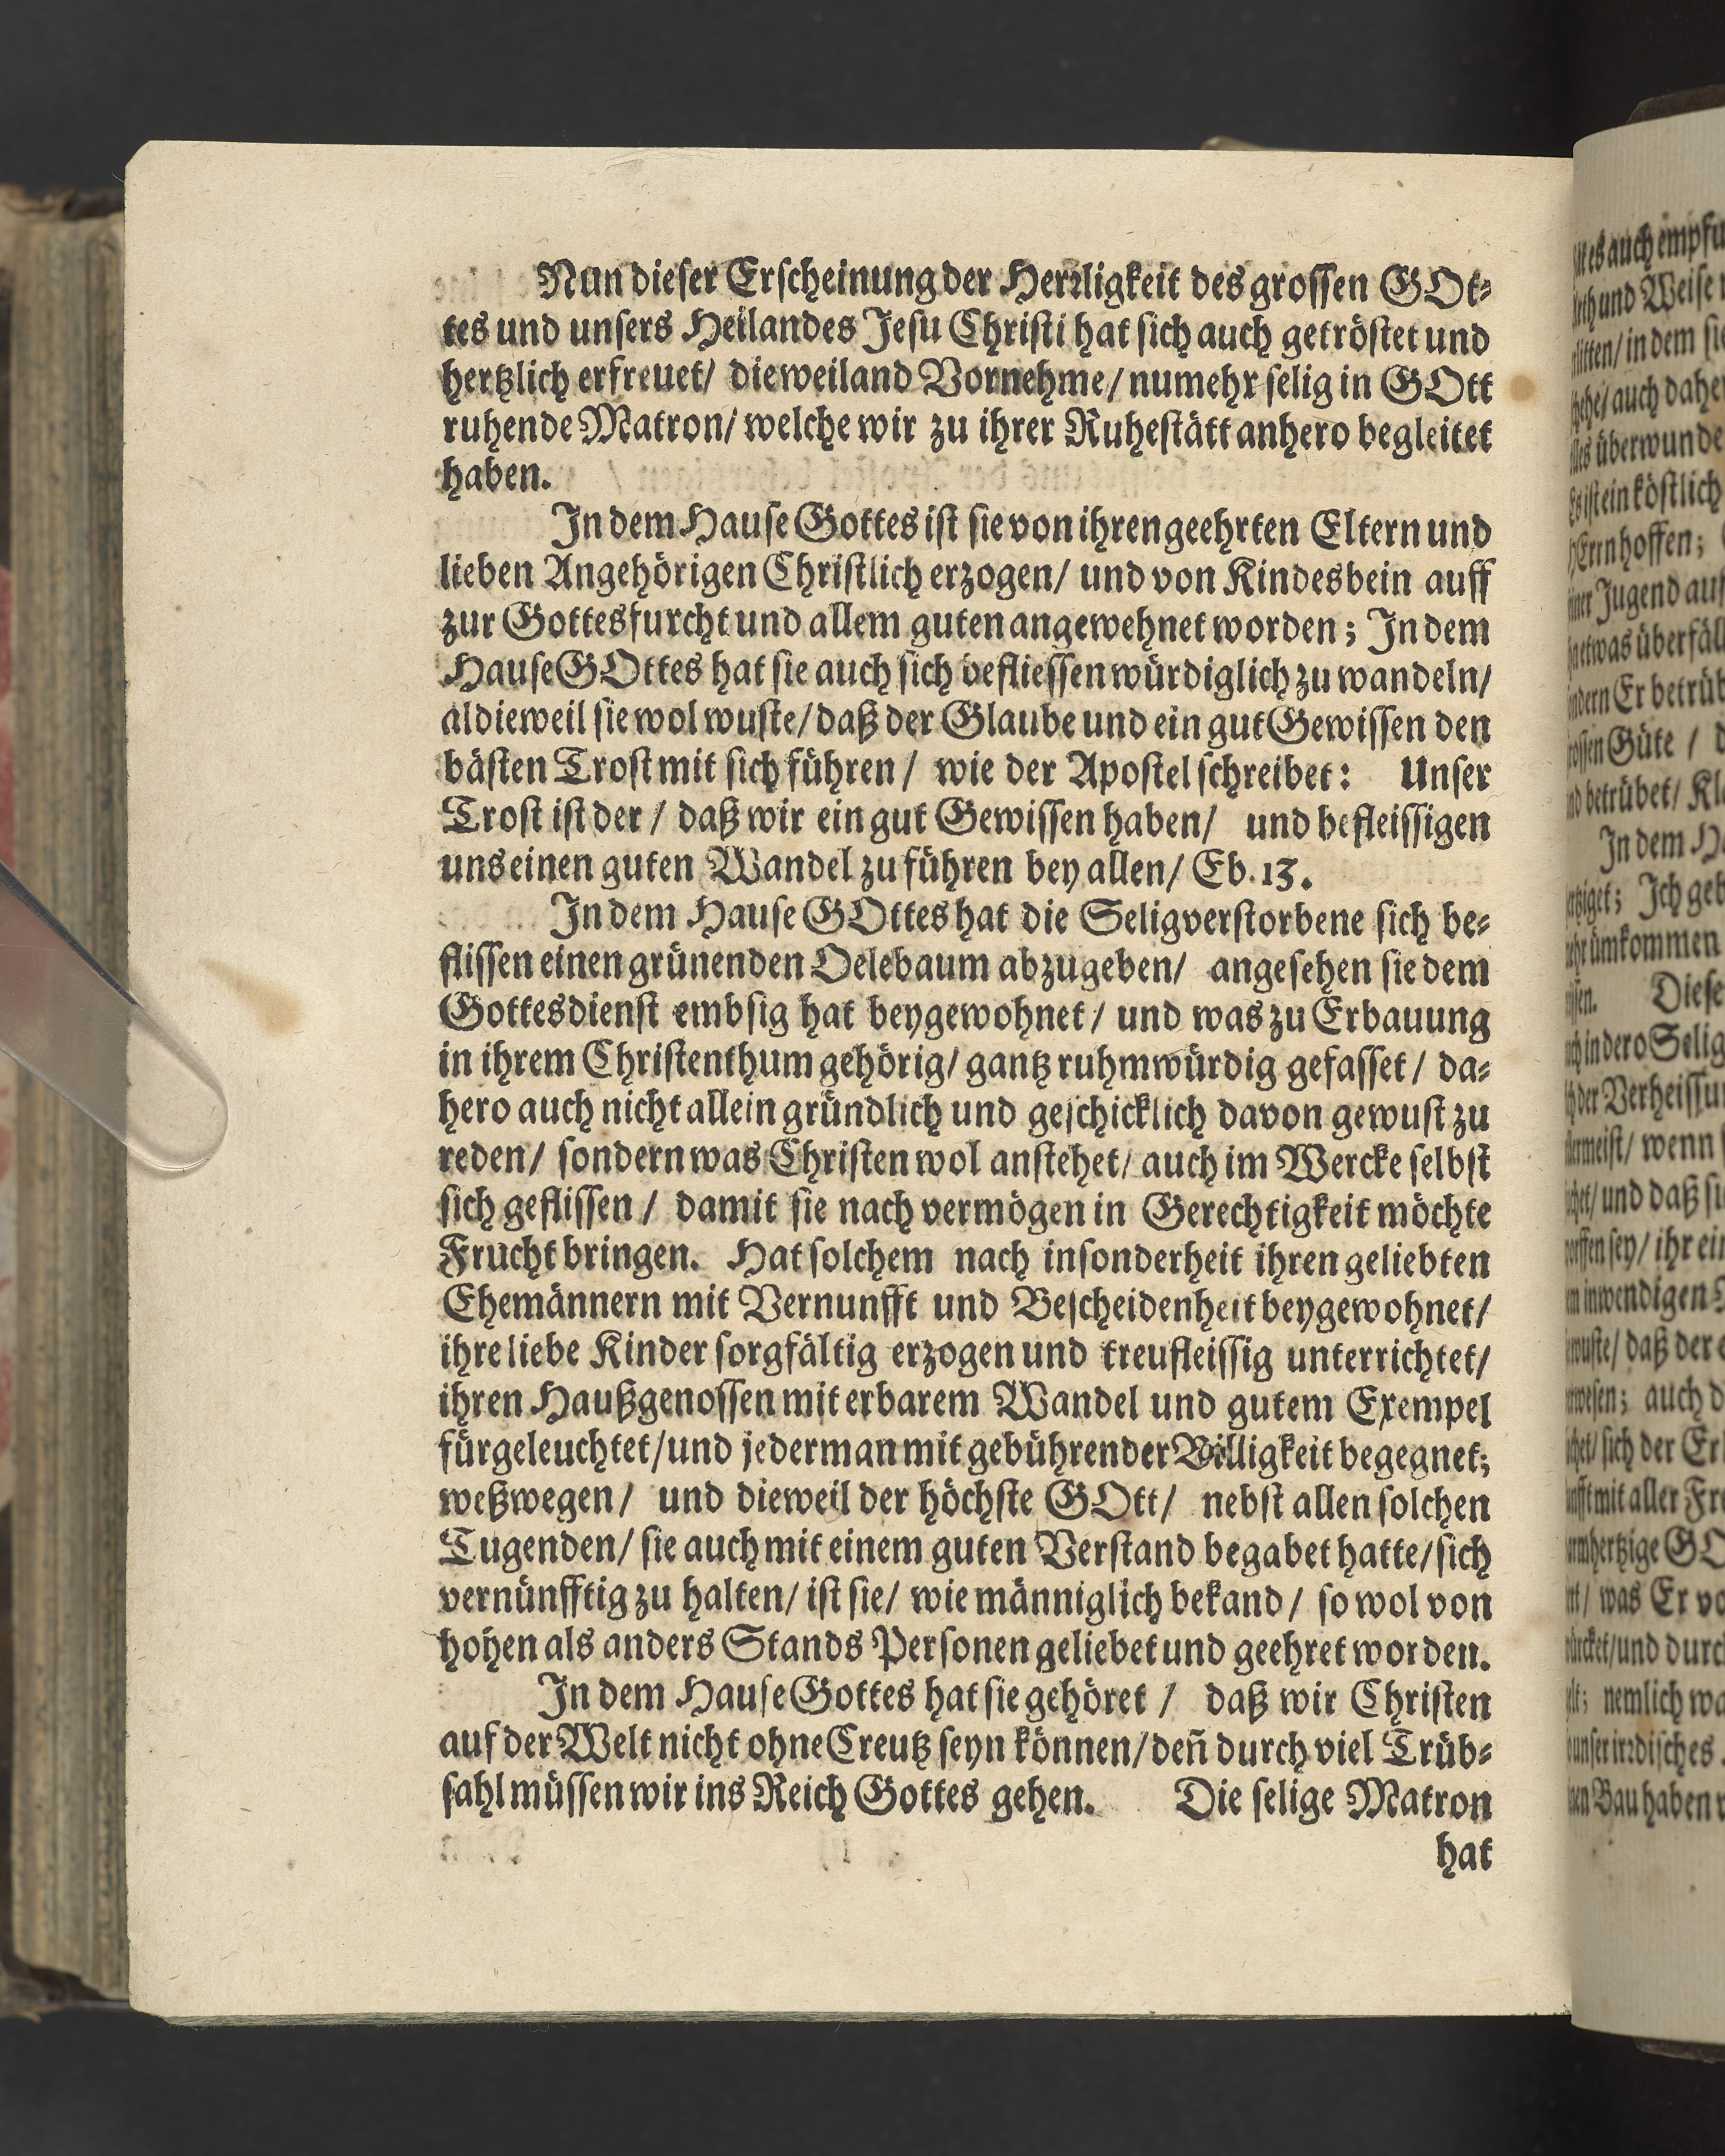 Nun dieser Erscheinung der Herꝛligkeit des grossen GOt⸗
tes und unsers Heilandes Jesu Christi hat sich auch getröstet und
hertzlich erfreuet/ die weiland Vornehme/ numehr selig in GOtt
ruhende Matron/ welche wir zu ihrer Ruhestätt anhero begleitet
haben.
In dem Hause Gottes ist sie von ihren geehrten Eltern und
lieben Angehörigen Christlich erzogen/ und von Kindesbein auff
zur Gottesfurcht und allem guten angewehnet worden; In dem
Hause GOttes hat sie auch sich befliessen würdiglich zu wandeln/
aldieweil sie wol wuste/ daß der Glaube und ein gut Gewissen den
bästen Trost mit sich führen/ wie der Apostel schreibet: Unser
Trost ist der/ daß wir ein gut Gewissen haben/ und befleissigen
uns einen guten Wandel zu führen bey allen/ Eb. 13.
In dem Hause GOttes hat die Seligverstorbene sich be⸗
flissen einen grünenden Oelebaum abzugeben/ angesehen sie dem
Gottesdienst embsig hat beygewohnet/ und was zu Erbauung
in ihrem Christenthum gehörig/ gantz ruhmwürdig gefasset/ da⸗
hero auch nicht allein gründlich und geschicklich davon gewust zu
reden/ sondern was Christen wol anstehet/ auch im Wercke selbst
sich geflissen/ damit sie nach vermögen in Gerechtigkeit möchte
Frucht bringen. Hat solchem nach insonderheit ihren geliebten
Ehemännern mit Vernunfft und Bescheidenheit beygewohnet/
ihre liebe Kinder sorgfältig erzogen und treufleissig unterrichtet/
ihren Haußgenossen mit erbarem Wandel und gutem Exempel
fürgeleuchtet/ und jederman mit gebührender Billigkeit begegnet;
weßwegen/ und dieweil der höchste GOtt/ nebst allen solchen
Tugenden/ sie auch mit einem guten Verstand begabet hatte/ sich
vernünfftig zu halten/ ist sie/ wie männiglich bekand/ so wol von
hohen als anders Stands Personen geliebet und geehret worden.
In dem Hause Gottes hat sie gehöret/ daß wir Christen
auf der Welt nicht ohne Creutz seyn können/ deñ durch viel Trüb⸗
sahl müssen wir ins Reich Gottes gehen. Die selige Matron
hat